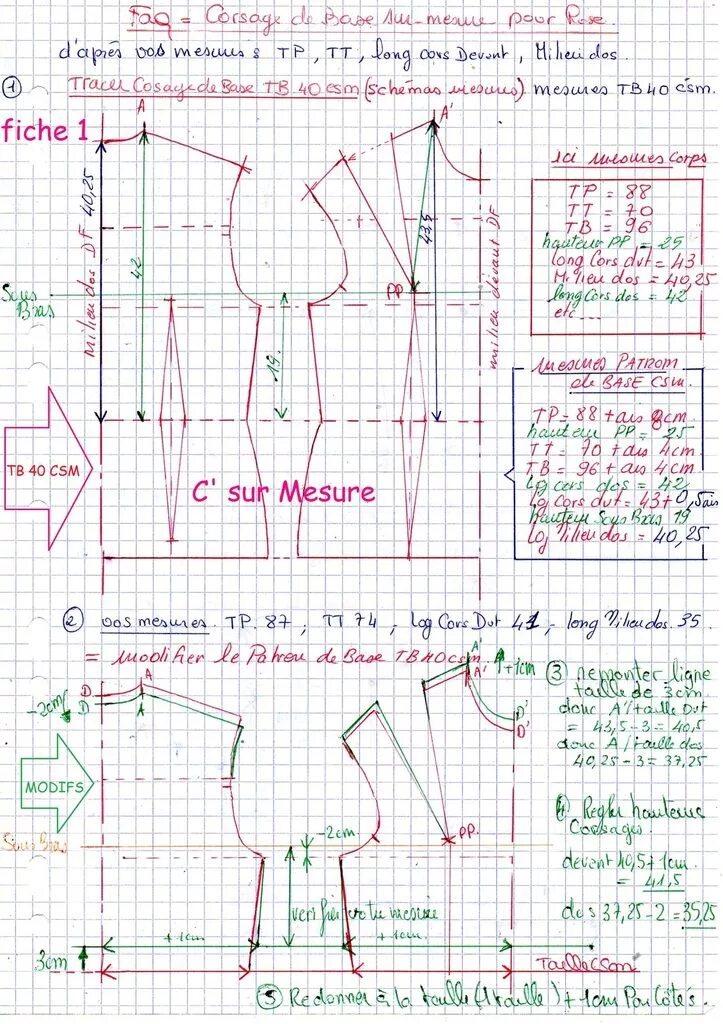 Faq = Corsage de Base sur-mesure pour Rose.
d'après vos mesures TP, TT, long cors Devant, Milieu dos.
① Tracer Cosage de Base TB 40 csm (schémas mesures) mesures TB 40 csm.
fiche 1
A
A'
ici mesures corps
TP = 88
TT = 70
TB = 96
hauteur PP = 25
long Cors dvt = 43
Milieu dos = 40,25
long Cors dos = 42
etc...
milieu dos DF 40,25
42
43,5
milieu devant DF
PP
Sous Bras
19
mesures PATROM
de BASE CSM.
TP = 88 + ais 8cm
hauteur PP = 25
TT = 70 + ais 4cm
TB = 96 + ais 4cm
Lg cors dos = 42
Lg Cors dvt = 43 + 0,5 ais
hauteur Sous Bras 19
Lg Milieu dos = 40,25
TB 40 CSM
C' sur Mesure
② vos mesures. TP. 87, TT 74, Log Cors Dvt 41, - long Milieu dos. 35
= modifier le Patron de Base TB 40 csm.
A'
A'
+1cm
-2cm
D
D
A
A
D'
D'
③ remonter ligne
taille de 3cm.
donc A'/taille Dvt
= 43,5 - 3 = 40,5
donc A/taille dos
40,25 - 3 = 37,25
MODIFS
Sous Bras
-2cm
PP.
④ Regler hauteurs
Corsages.
devant 40,5 + 1cm
= 41,5
dos 37,25 - 2 = 35,25
verifier votre mesure
+ 1cm
+ 1cm
3cm
Taille CSM
⑤ Redonner à la taille (1 taille) + 1cm Par Côtés.